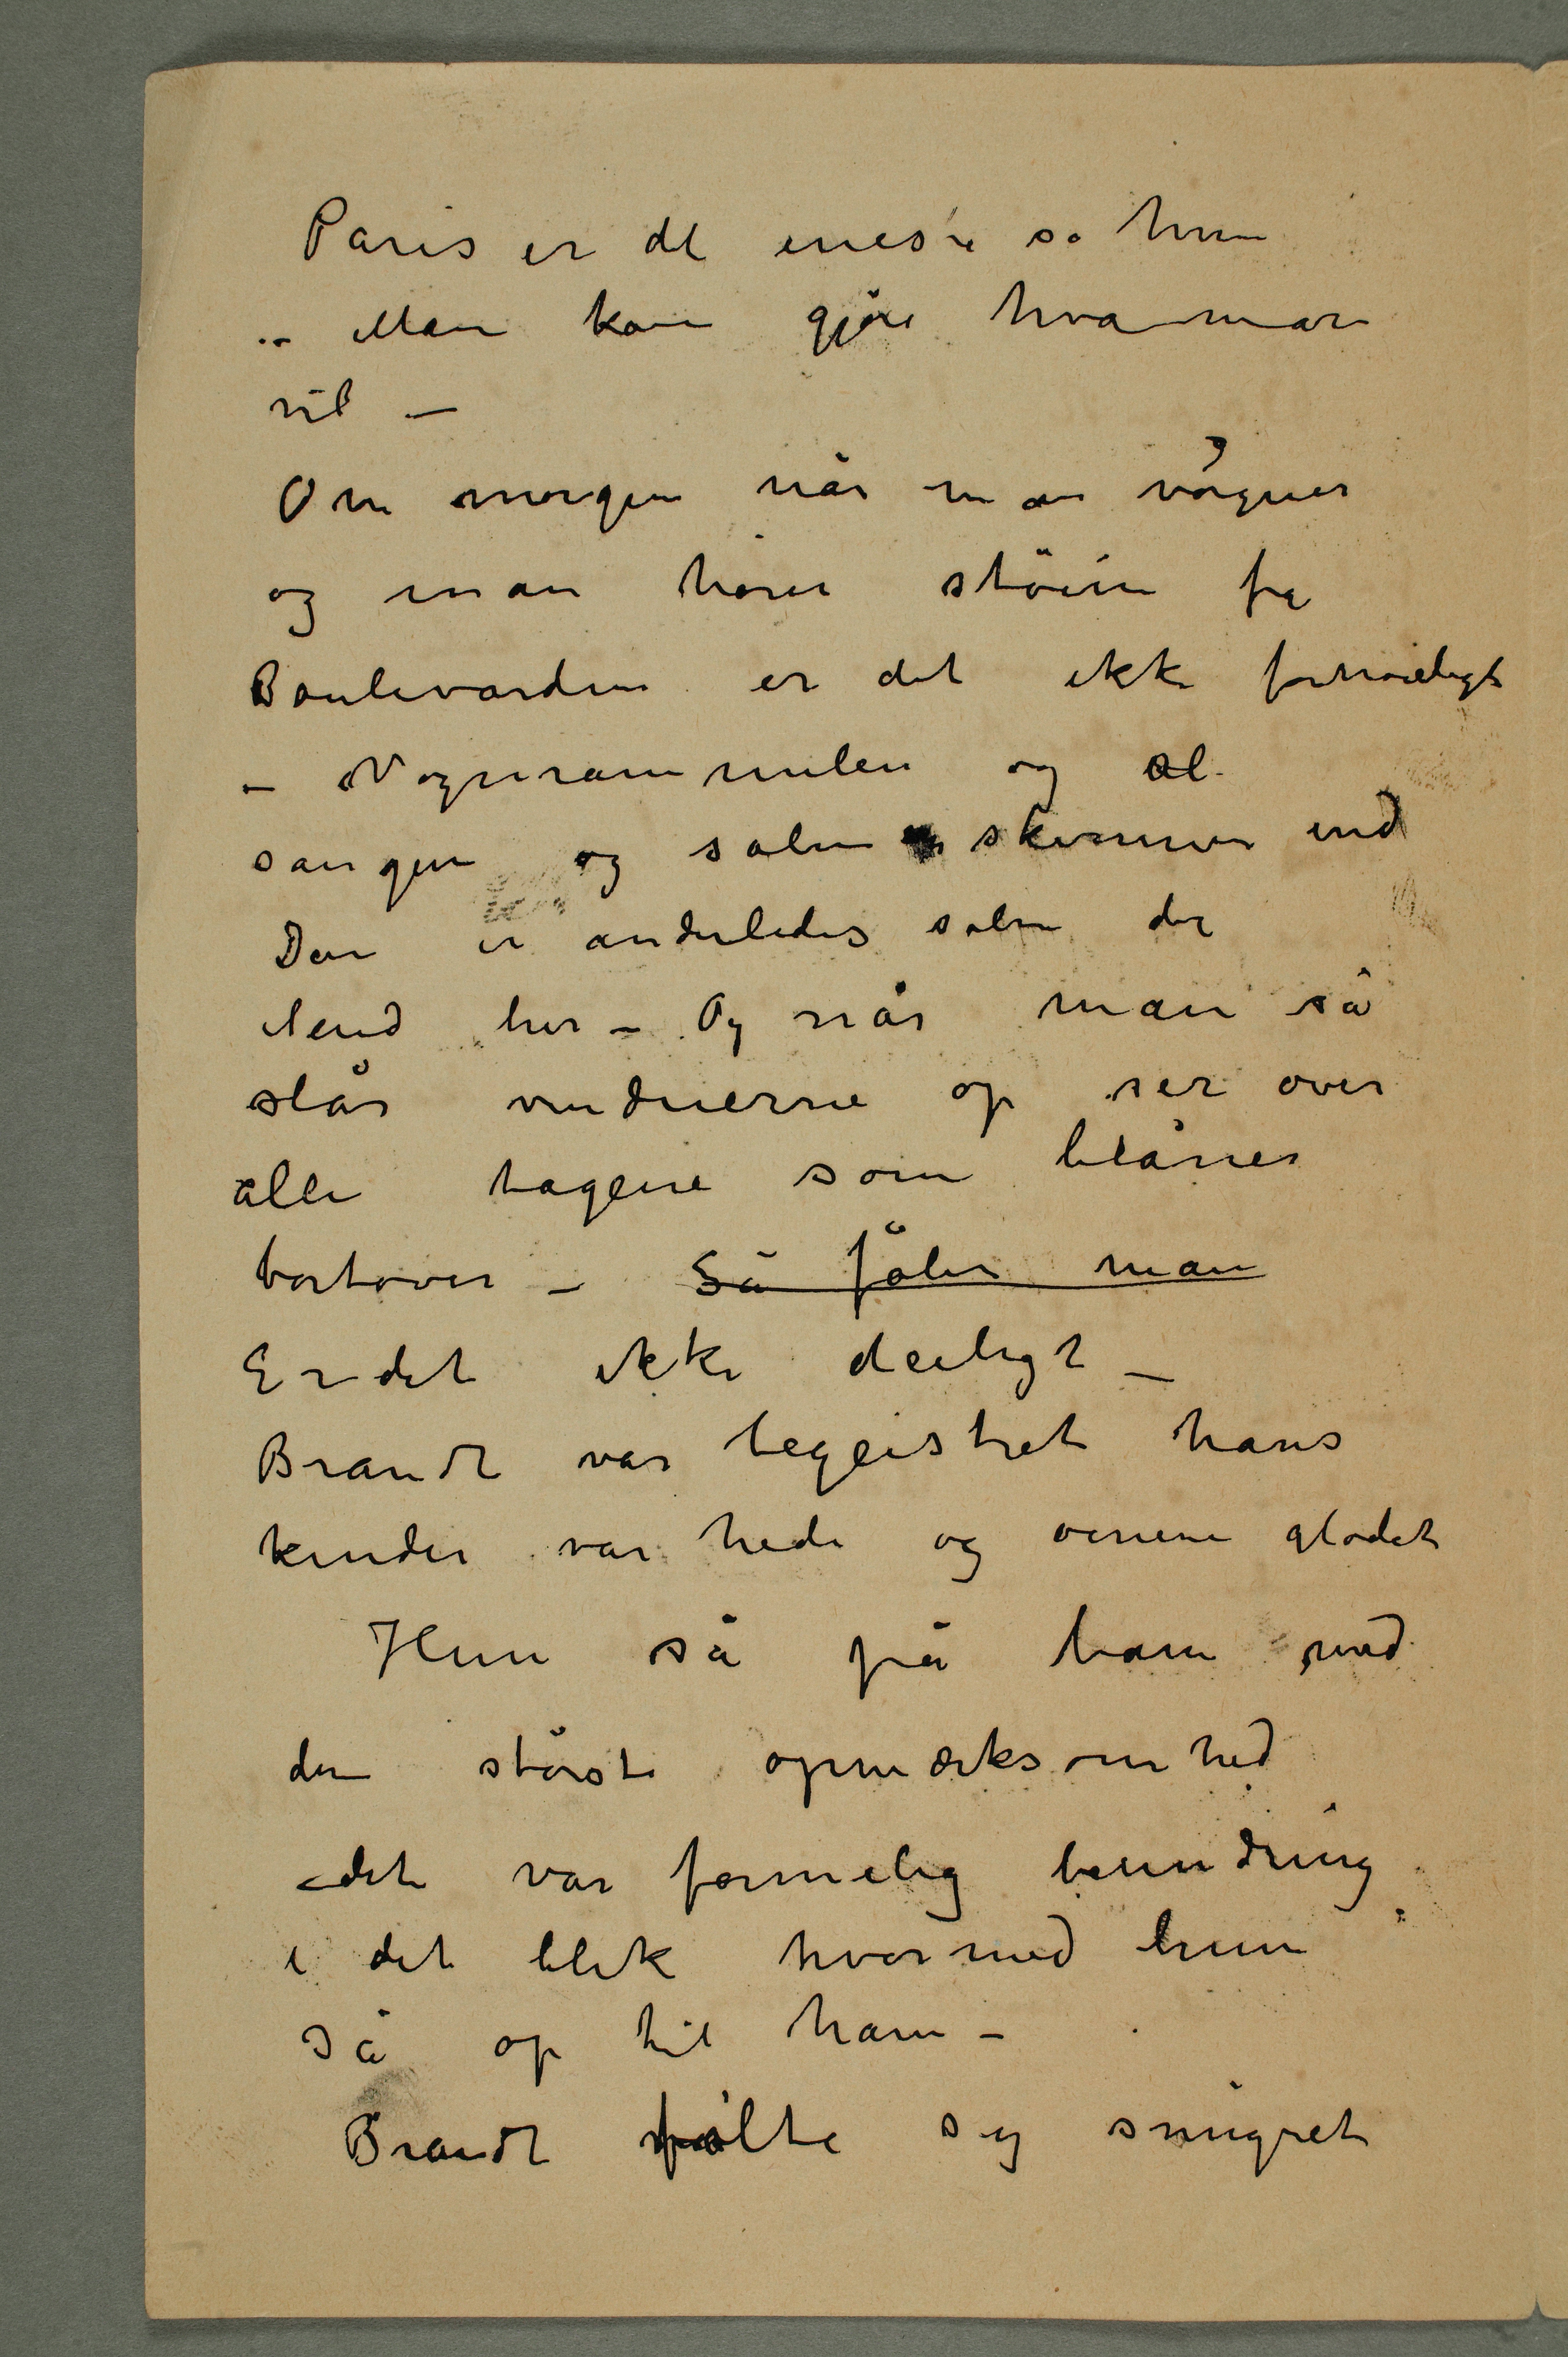 Paris er det eneste sa hun
– Man kan gjöre hva man
vil –
Om morgen når man vågner
og man hører støien fra
Boulevarden er det ikke fornøieligt
– Vognrammelen og al
sangen og solen skinner ind
Den er anderledes solen der
end her – Og når man så
slår vinduerne op ser over
alle tagene som blåner
bortover – Så føler man
Er det ikke deiligt –
Brandt var begeistret hans
kinder var hede og øinene glødet
Hun så på ham med
den største opmærksomhed
– det var formelig beundring
i det blik hvormed hun
så op til ham –
Brandt følte sig smigret